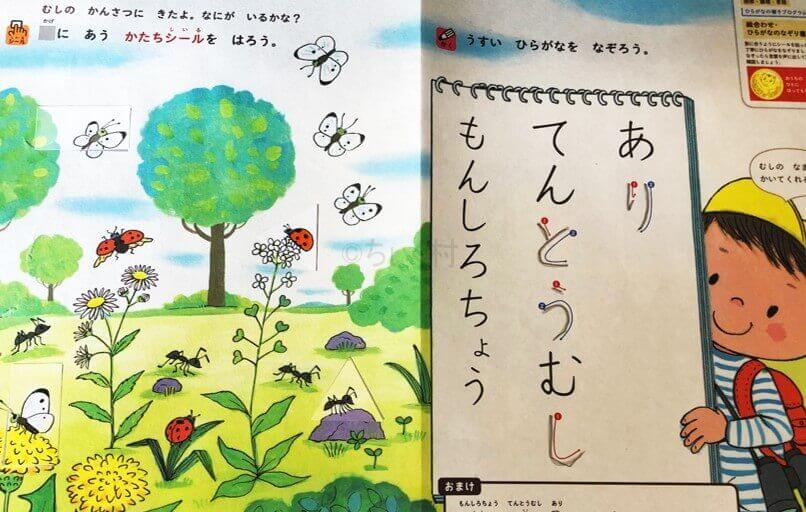 むしの かんさつに きたよ。なにが いるかな?
シール
かげ
に あう かたちシールを はろう。
しいる
かく
うすい ひらがなを なぞろう。
あり
てんとうむし
もんしろちょう
絵合わせ・
ひらがなのなぞり書
おうちの
むしの なま
かいてくれ
おまけ
もんしろちょう てんとうむし あり